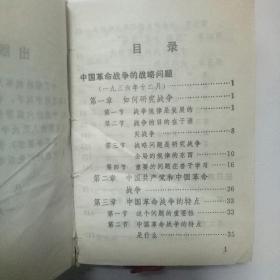 目录
中国革命战争的战略问题
(一九三六年十二月) 1
第一章 如何研究战争 1
第一节 战争规律是发展的 1
第二节 战争的目的在于消
灭战争 8
第三节 战略问题是研究战争
全局的规律的东西 10
第四节 重要的问题在善于学习 16
第二章 中国共产党和中国革命
战争 26
第三章 中国革命战争的特点 33
第一节 这个问题的重要性 33
第二节 中国革命战争的特点
是什么 35
1